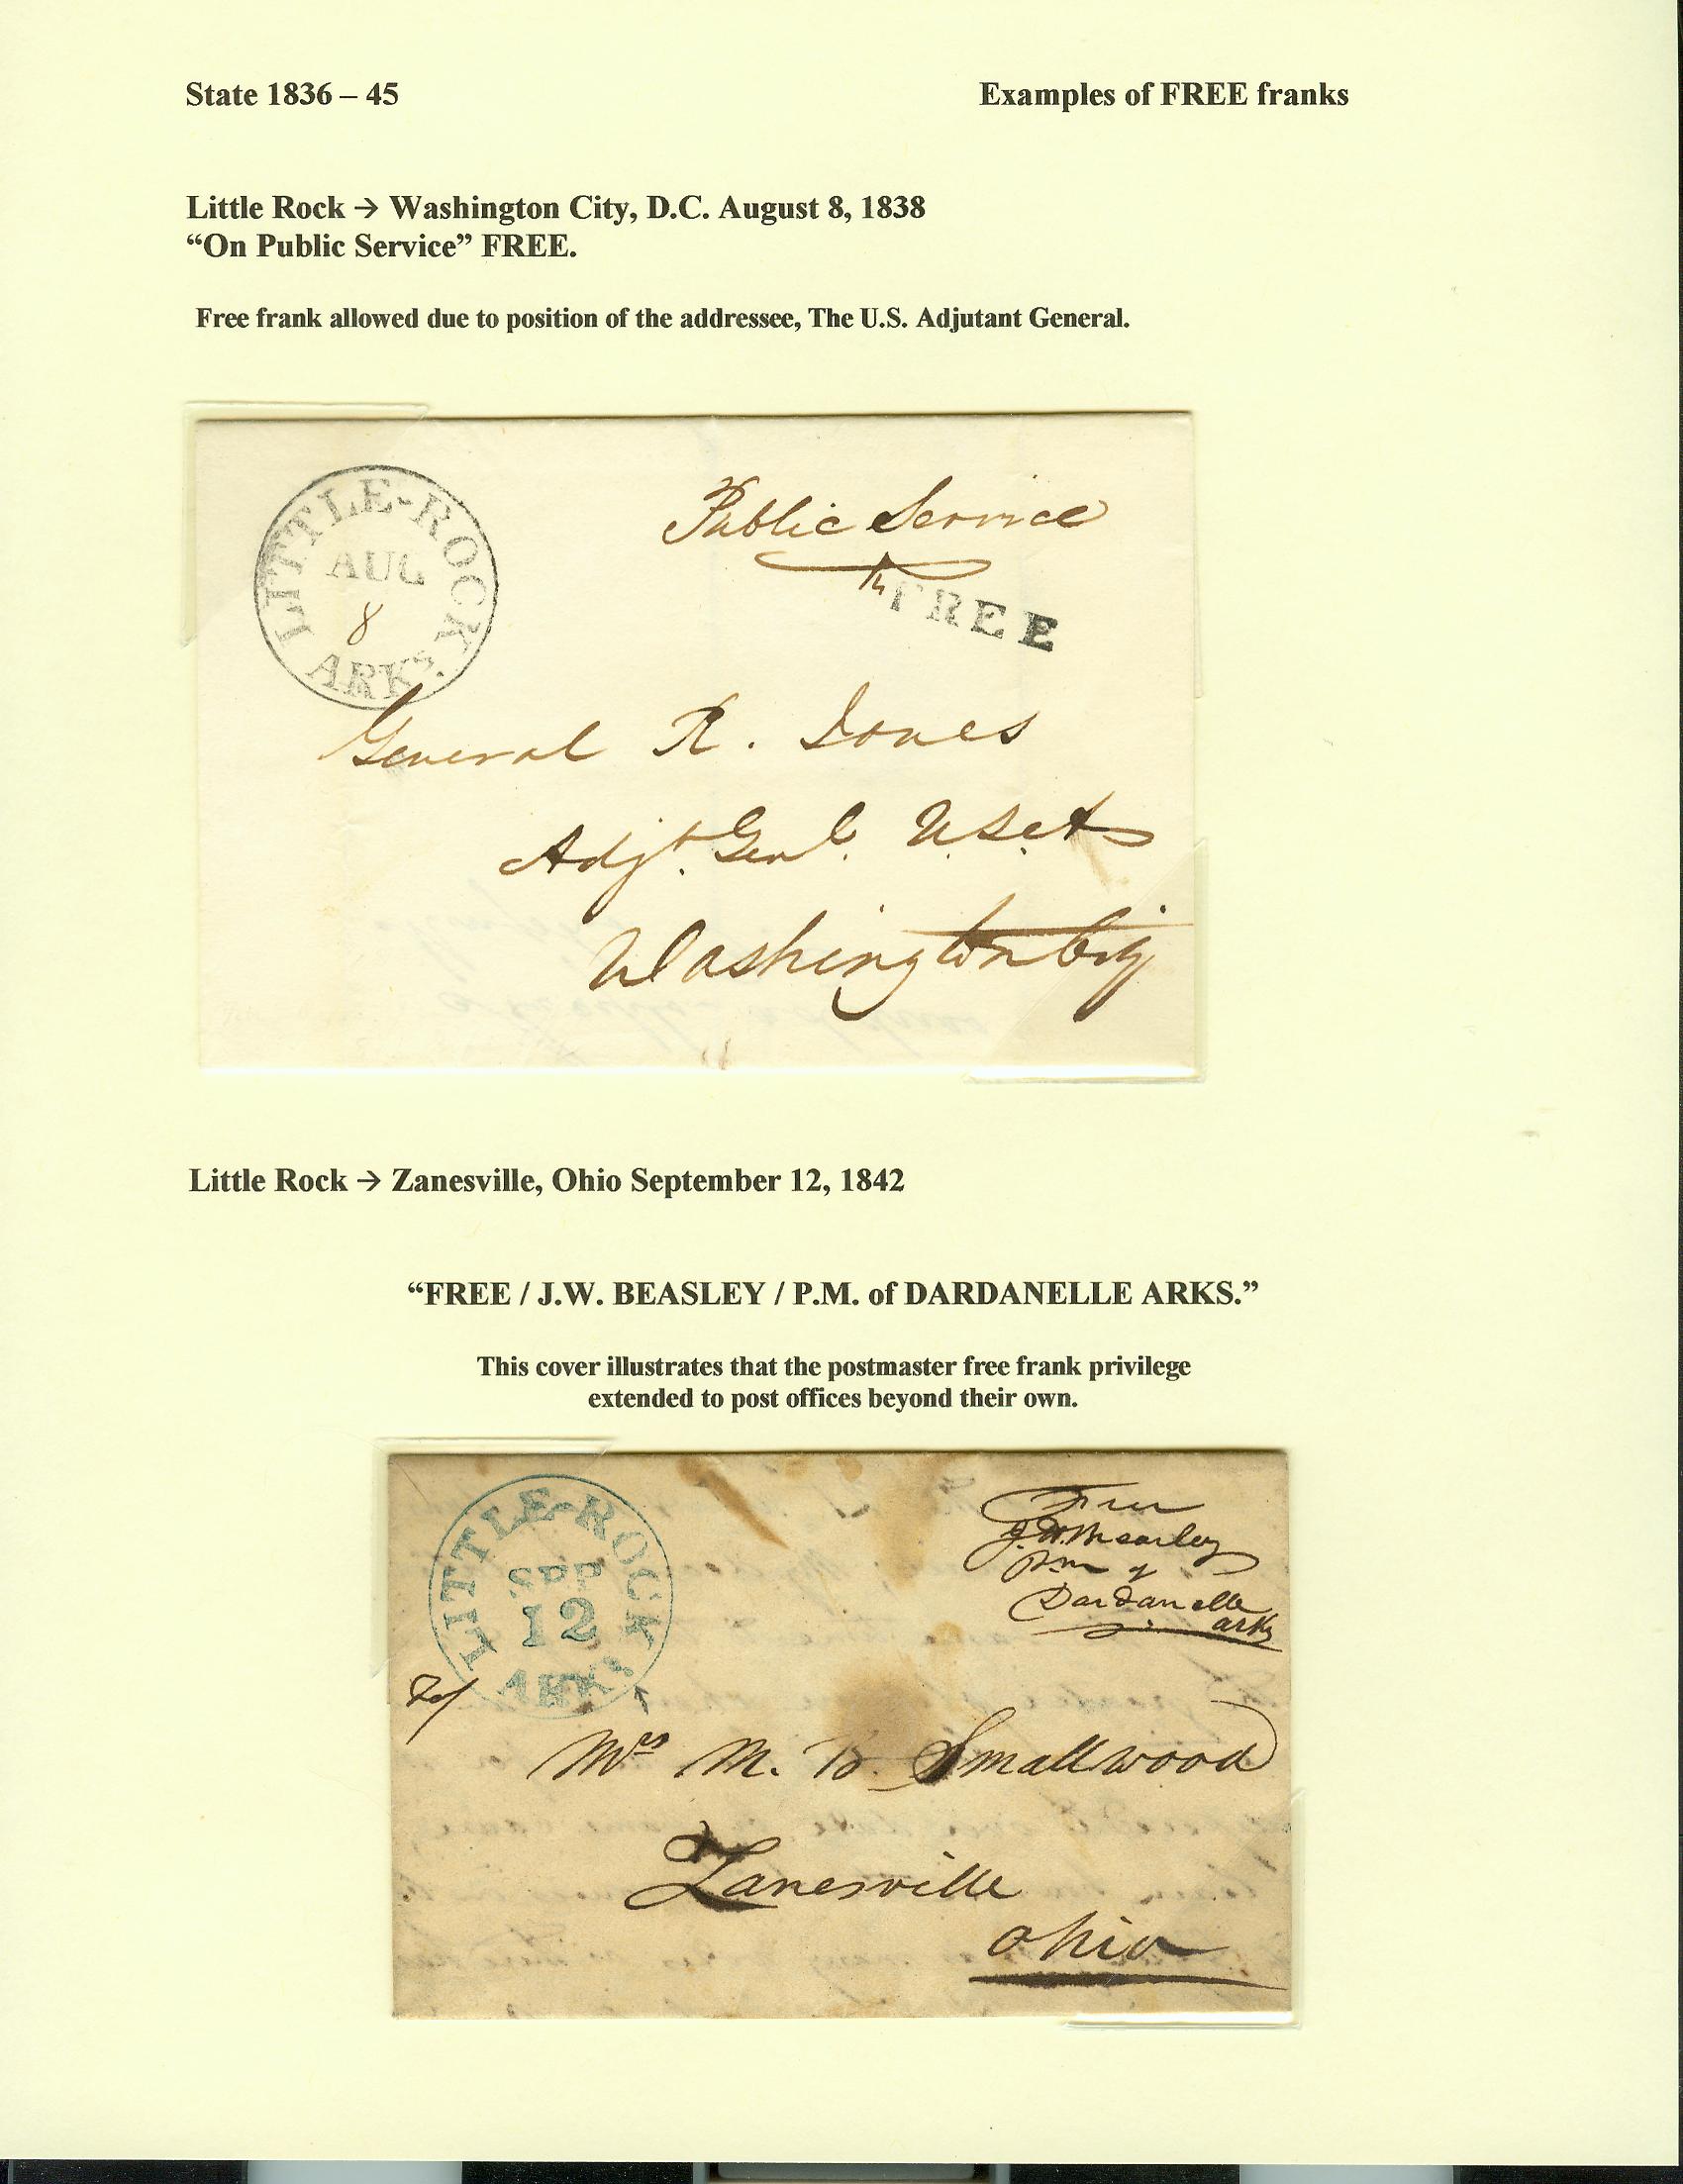 State 1836 – 45
Examples of FREE franks
Little Rock → Washington City, D.C. August 8, 1838
“On Public Service” FREE.
Free frank allowed due to position of the addressee, The U.S. Adjutant General.
LITTLE-ROCK
AUG
8
ARKS.
Public Service
FREE
General R. Jones
Adjt. Genl. U.S.A
Washington City
Little Rock → Zanesville, Ohio September 12, 1842
“FREE / J.W. BEASLEY / P.M. of DARDANELLE ARKS.”
This cover illustrates that the postmaster free frank privilege
extended to post offices beyond their own.
LITTLE-ROCK
SEP
12
ARKS.
Free
J. W. Beasley
Pm of
Dardanelle
arks
Mrs M. B. Smallwood
Zanesville
ohio